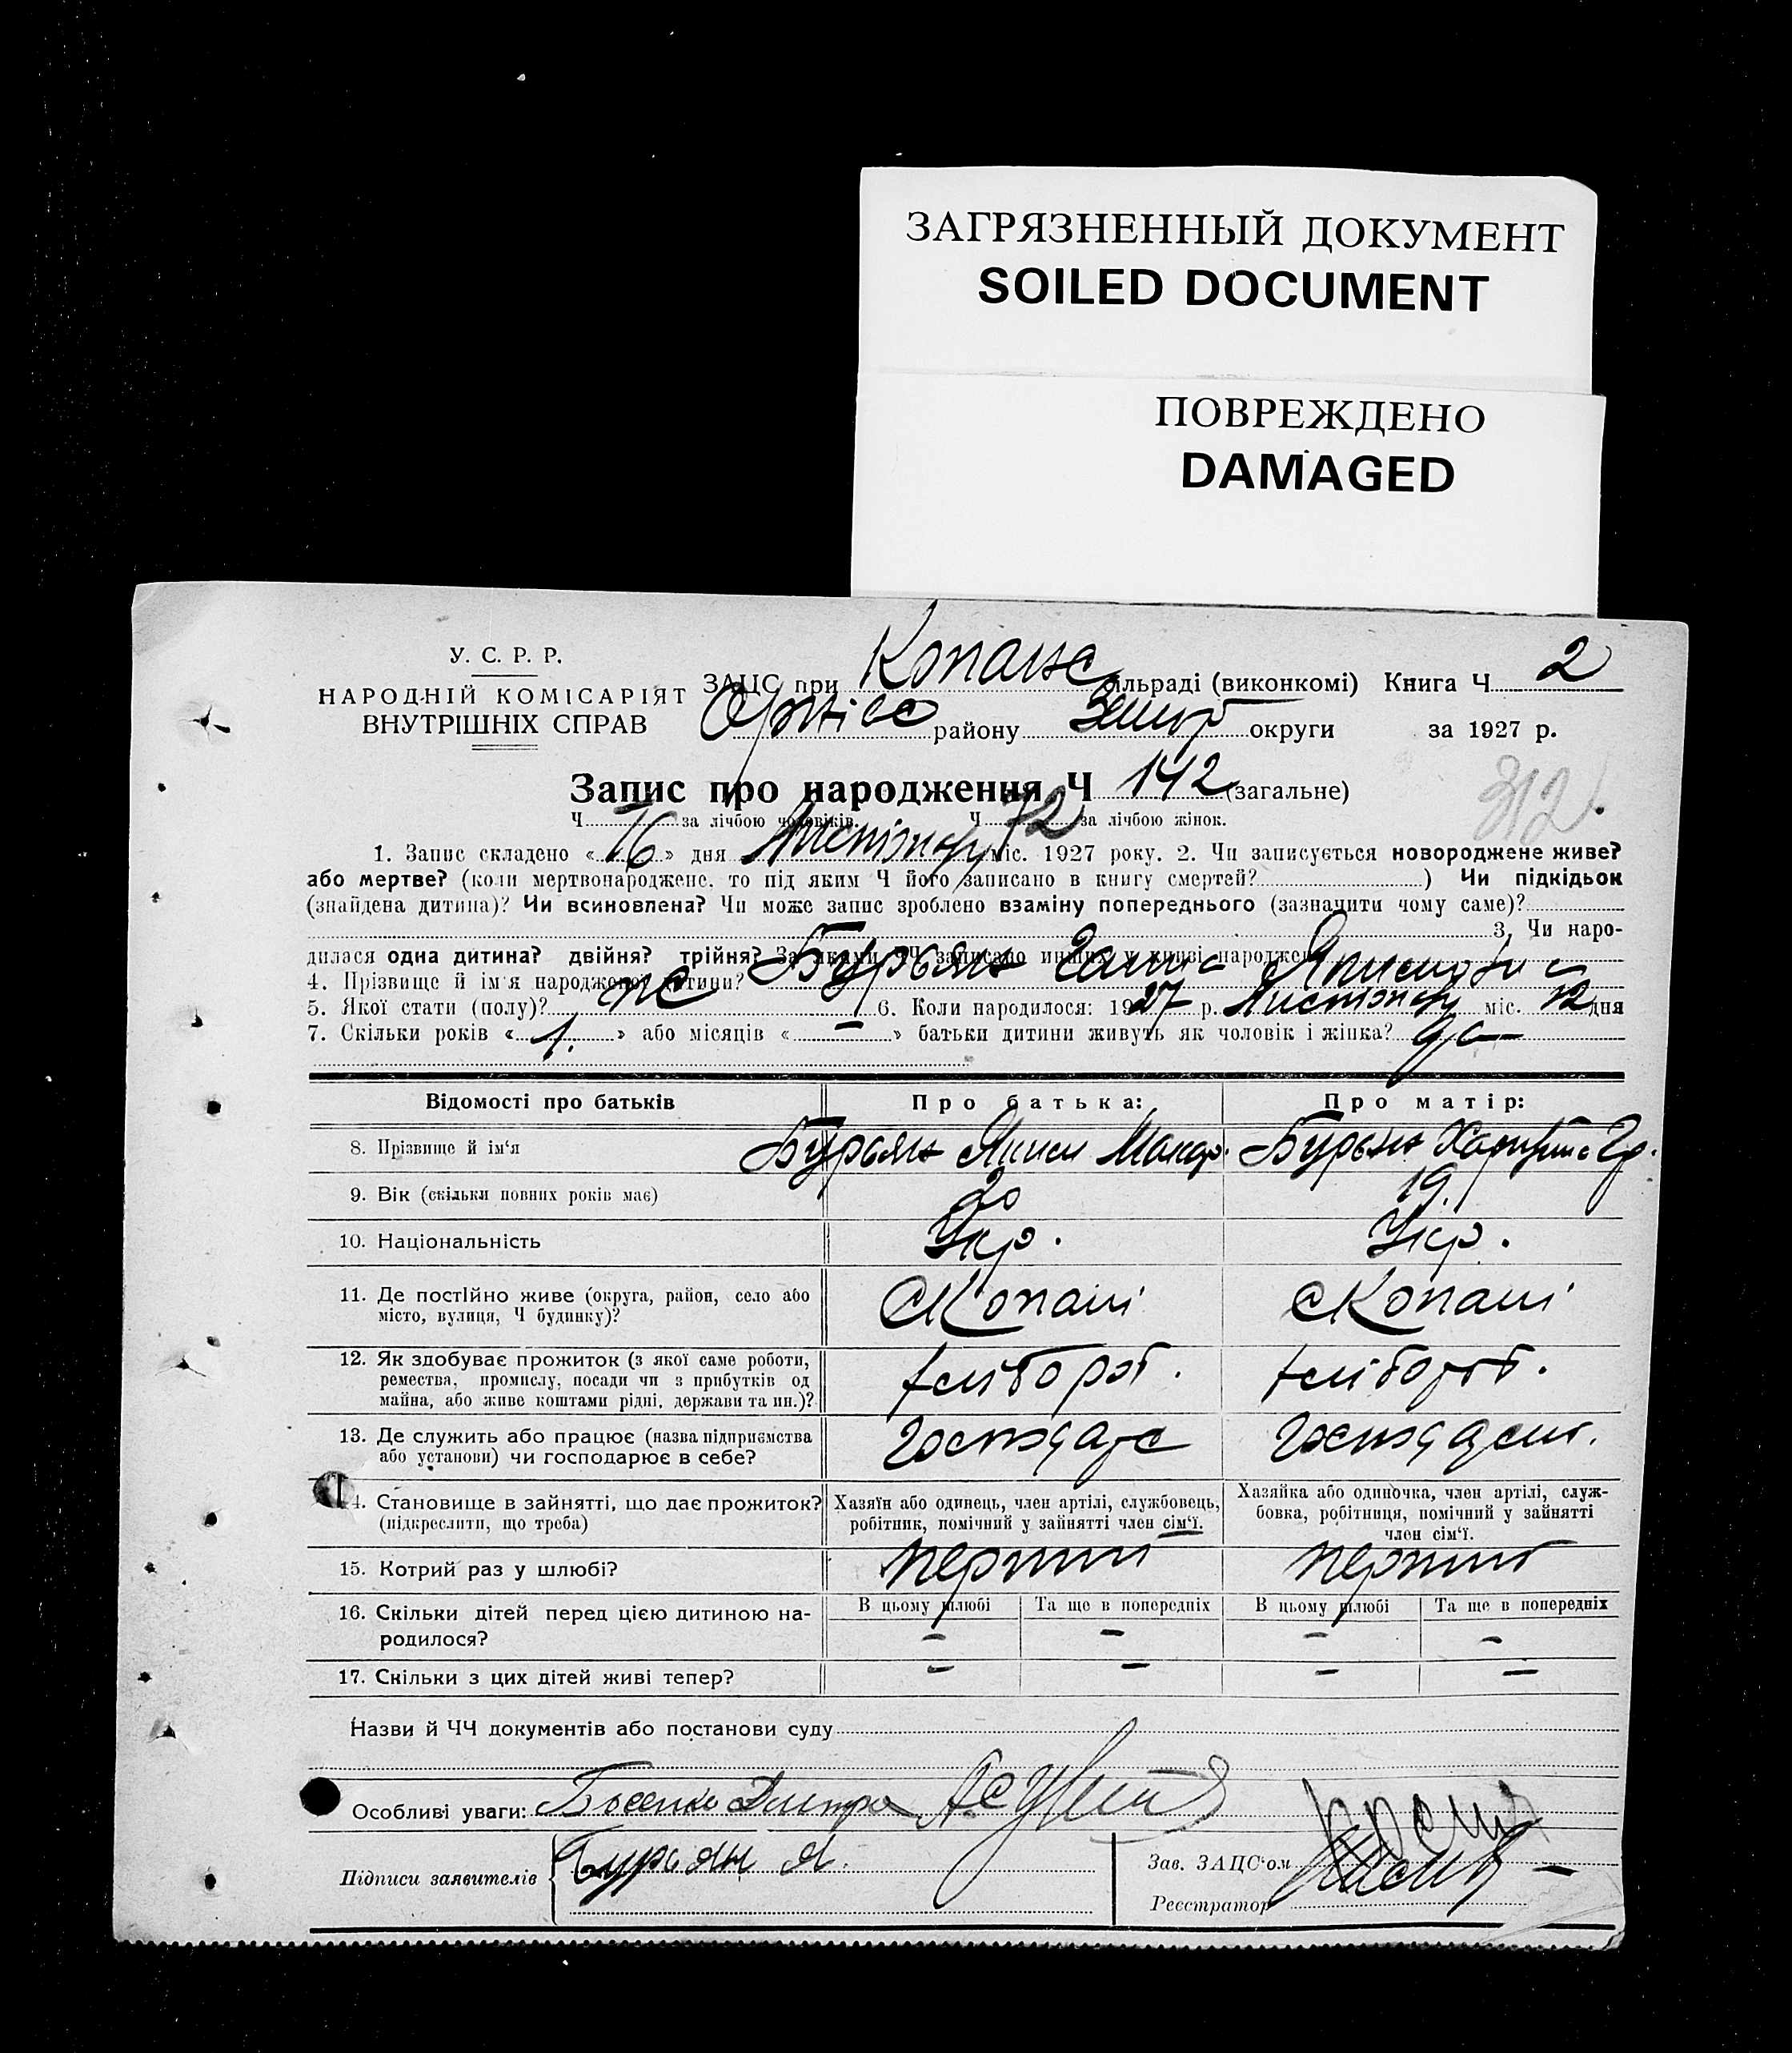 ЗАГРЯЗНЕННЫЙ ДОКУМЕНТ
SOILED DOCUMENT
ПОВРЕЖДЕНО
DAMAGED
У. С. Р. Р.
НАРОДНІЙ КОМІСАРІЯТ
ВНУТРІШНІХ СПРАВ
ЗАЦС при Копанс сільраді (виконкомі) Книга Ч 2
району округи за 1927 р.
Запис про народження Ч 142 (загальне)
312
Ч за лічбою чоловіків. Ч 72 за лічбою жінок.
1. Запис складено « 16 » дня Листопад міс. 1927 року. 2. Чи записується новороджене живе?
або мертве? (коли мертвонароджене, то під яким Ч його записано в книгу смертей? ) Чи підкідьок
(знайдена дитина)? Чи всиновлена? Чи може запис зроблено взаміну попереднього (зазначити чому саме)?
3. Чи наро-
дилася одна дитина? двійня? трійня? За якими ЧЧ записано инших у книзі народжень
4. Прізвище й ім'я народженої дитини? Бурьян Ганна
5. Якої стати (полу)? же 6. Коли народилося: 1927 р. Листопад міс. 12 дня
7. Скільки років « 1. » або місяців « – » батьки дитини живуть як чоловік і жінка? да
Відомості про батьків Про батька: Про матір:
8. Прізвище й ім'я Бурьян Макар. Бурьян Гр.
9. Вік (скільки повних років має) 20 19.
10. Національність Укр. Укр.
11. Де постійно живе (округа, район, село або
місто, вулиця, Ч будинку)?
с Копані с Копані
12. Як здобуває прожиток (з якої саме роботи,
ремества, промислу, посади чи з прибутків од
майна, або живе коштами рідні, держави та ин.)?
хлібороб. хлібороб.
13. Де служить або працює (назва підприємства
або установи) чи господарює в себе?
14. Становище в зайнятті, що дає прожиток?
(підкреслити, що треба)
Хазяїн або одинець, член артілі, службовець,
робітник, помічний у зайнятті член сім'ї.
Хазяйка або одиночка, член артілі, служ-
бовка, робітниця, помічний у зайнятті
член сім'ї.
15. Котрий раз у шлюбі? перший перший
16. Скільки дітей перед цією дитиною на-
родилося?
В цьому шлюбі Та ще в попередніх В цьому шлюбі Та ще в попередніх
– – – –
17. Скільки з цих дітей живі тепер? – – – –
Назви й ЧЧ документів або постанови суду
Особливі уваги:
Підписи заявителів Бурьян Я.
Зав. ЗАЦС'ом
Реєстратор